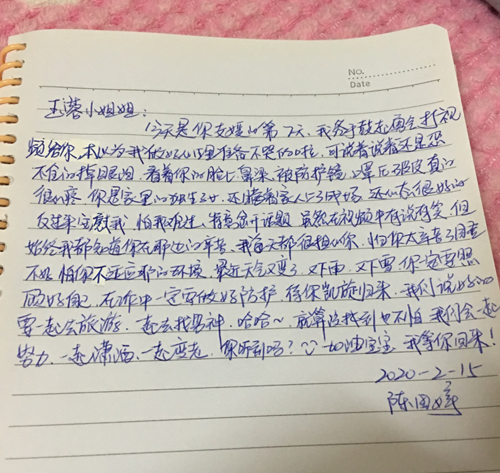 No.
Date
玉蓉小姐姐：
今天是你支援的第7天，我终于鼓起勇气打视
频给你，本以为我做好心理准备不哭的啦，可说着说着还是忍
不住的掉眼泪，看着你的脸上 鼻梁 被防护镜 口罩压破皮真的
很心疼，你是家里的独生子女，还瞒着家人上了战场，还心态很好的
反过来安慰我，怕我难过，有意岔开话题，虽然在视频中有说有笑，但
始终我都知道你在那边的辛苦，我每天都很担心你，怕你太辛苦了身体
不好，怕你不适应那的环境，最近天气又变了，又下雨，又下雪，你一定要照
顾好自己，在工作中一定要做好防护，待你凯旋归来，我们说好的
要一起去旅游，一起去找男神，哈哈~，就算没找到也不怕，我们会一起
努力，一起潇洒，一起变老，你听到吗？加油宝宝，我等你回来！
2020-2-15
陈